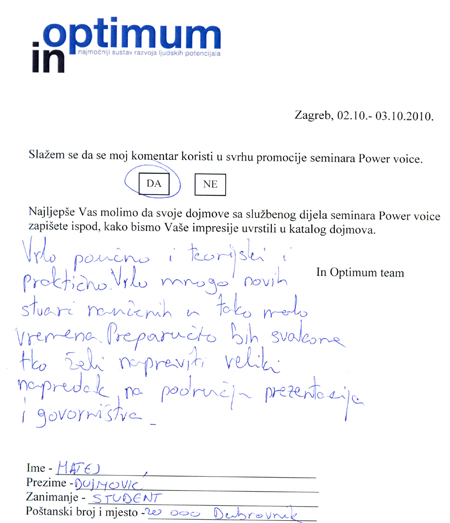 in optimum
najmoćniji sustav razvoja ljudskih potencijala
Zagreb, 02.10.- 03.10.2010.
Slažem se da se moj komentar koristi u svrhu promocije seminara Power voice.
DA NE
Najljepše Vas molimo da svoje dojmove sa službenog dijela seminara Power voice
zapišete ispod, kako bismo Vaše impresije uvrstili u katalog dojmova.
In Optimum team
Vrlo poučno i teorijski i
praktično. Vrlo mnogo novih
stvari naučenih u tako malo
vremena. Preporučio bih svakome
tko želi napraviti veliki
napredak na području prezentacija
i govorništva.
Ime - MATEJ
Prezime - DUJMOVIĆ
Zanimanje - STUDENT
Poštanski broj i mjesto - 20 000 Dubrovnik